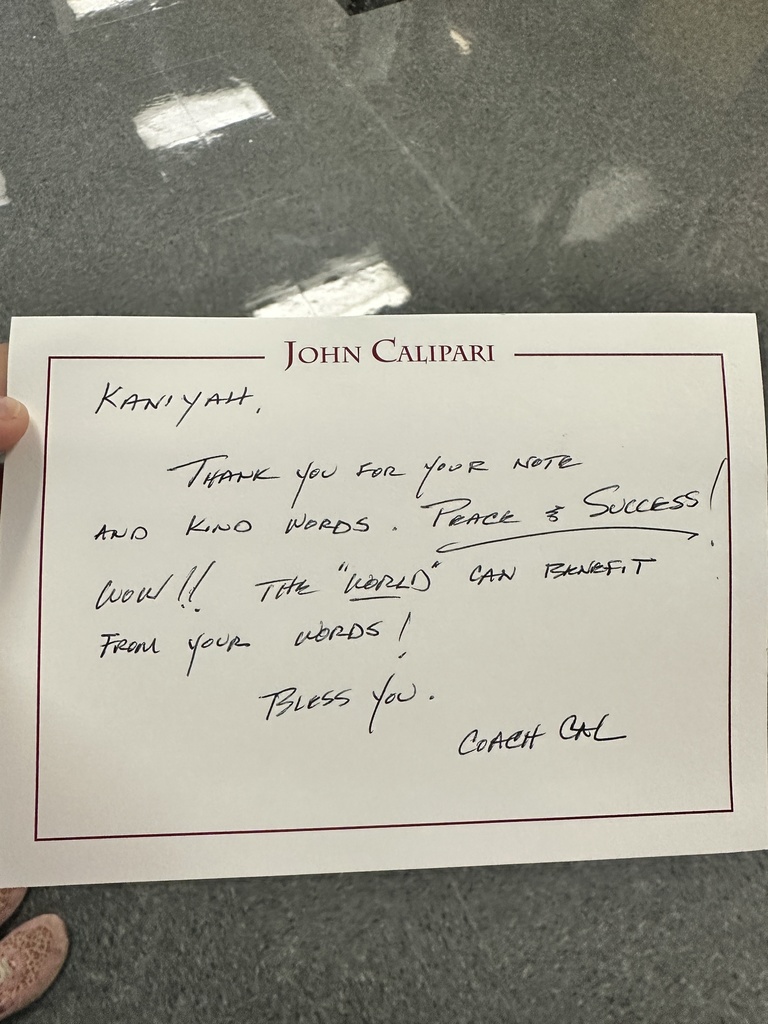 JOHN CALIPARI
KANIYAH,
THANK YOU FOR YOUR NOTE
AND KIND WORDS. PEACE & SUCCESS!
WOW!! THE "WORLD" CAN BENEFIT
FROM YOUR WORDS!
BLESS YOU.
COACH CAL